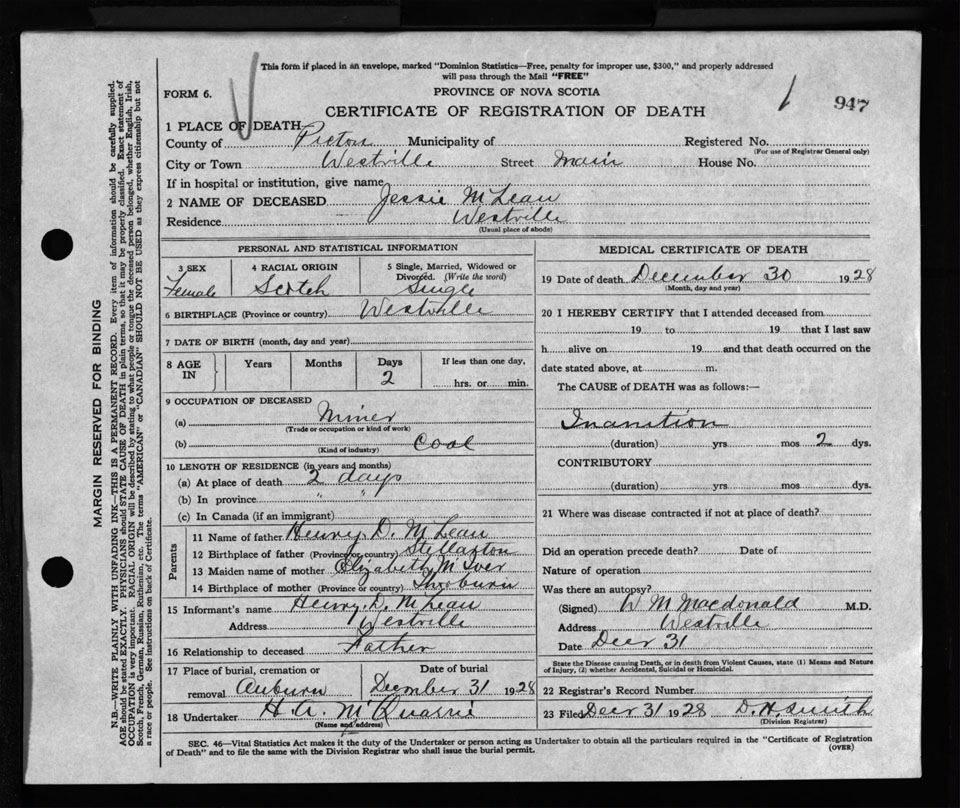 This form if placed in an envelope, marked "Dominion Statistics—Free, penalty for improper use, $300," and properly addressed
will pass through the Mail "FREE"
FORM 6.
PROVINCE OF NOVA SCOTIA
947
CERTIFICATE OF REGISTRATION OF DEATH
1 PLACE OF DEATH
County of Pictou Municipality of Registered No.
(For use of Registrar General only)
City or Town Westville Street Main House No.
If in hospital or institution, give name
2 NAME OF DECEASED Jessie McLean
Residence Westville
(Usual place of abode)
PERSONAL AND STATISTICAL INFORMATION
3 SEX 4 RACIAL ORIGIN 5 Single, Married, Widowed or
Divorced. (Write the word)
Female Scotch Single
6 BIRTHPLACE (Province or country) Westville
7 DATE OF BIRTH (month, day and year)
8 AGE IN Years Months Days If less than one day,
2 hrs. or min.
9 OCCUPATION OF DECEASED
(a) Miner
(Trade or occupation or kind of work)
(b) Coal
(Kind of industry)
10 LENGTH OF RESIDENCE (in years and months)
(a) At place of death 2 days
(b) In province " "
(c) In Canada (if an immigrant)
Parents
11 Name of father Henry D. McLean
12 Birthplace of father (Province or country) Stellarton
13 Maiden name of mother Elizabeth McIver
14 Birthplace of mother (Province or country) Thorburn
15 Informant's name Henry D. McLean
Address Westville
16 Relationship to deceased Father
17 Place of burial, cremation or Date of burial
removal Auburn December 31 1928
18 Undertaker H. A. McQuarrie
(Name and address)
MEDICAL CERTIFICATE OF DEATH
19 Date of death December 30 1928
(Month, day and year)
20 I HEREBY CERTIFY that I attended deceased from
19 to 19 that I last saw
h alive on 19 and that death occurred on the
date stated above, at m.
The CAUSE of DEATH was as follows:—
Inanition
(duration) yrs mos 2 dys.
CONTRIBUTORY
(duration) yrs mos dys.
21 Where was disease contracted if not at place of death?
Did an operation precede death? Date of
Nature of operation
Was there an autopsy?
(Signed) W M Macdonald M.D.
Address Westville
Date Decr 31
State the Disease causing Death, or in death from Violent Causes, state (1) Means and Nature
of Injury, (2) whether Accidental, Suicidal or Homicidal.
22 Registrar's Record Number
23 Filed Decr 31 1928 D. H. Smith
(Division Registrar)
SEC. 46—Vital Statistics Act makes it the duty of the Undertaker or person acting as Undertaker to obtain all the particulars required in the "Certificate of Registration
of Death" and to file the same with the Division Registrar who shall issue the burial permit.
(OVER)
MARGIN RESERVED FOR BINDING
N.B.—WRITE PLAINLY WITH UNFADING INK—THIS IS A PERMANENT RECORD. Every item of information should be carefully supplied.
AGE should be stated EXACTLY. PHYSICIANS should STATE CAUSE OF DEATH in plain terms, so that it may be properly classified. Exact statement of
OCCUPATION is very important. RACIAL ORIGIN will be described by stating to what people or tongue the deceased person belonged, whether English, Irish,
Scotch, French, German, Russian, Ruthenian, etc. The terms "AMERICAN" or "CANADIAN" SHOULD NOT BE USED as they express citizenship but not
a race or people. See instructions on back of Certificate.